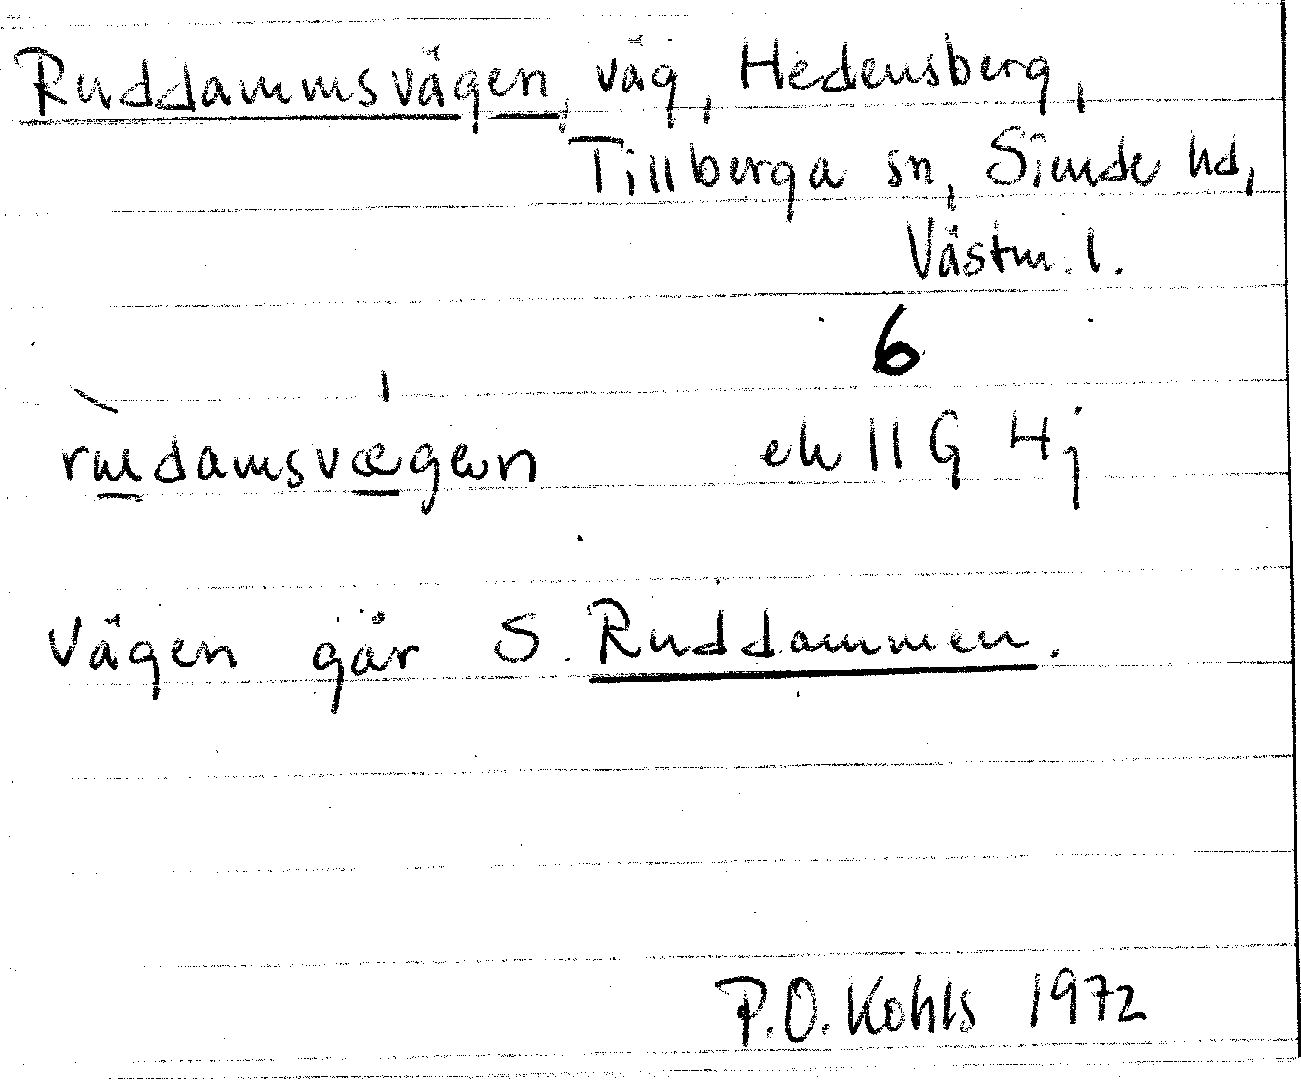 Ruddammsvägen, väg, Hedensberg,
Tillberga sn, Siende hd,
Västm. l.
6
rudamsvægen ek 11G 4j
Vägen går S. Ruddammen.
P.O. Kohls 1972